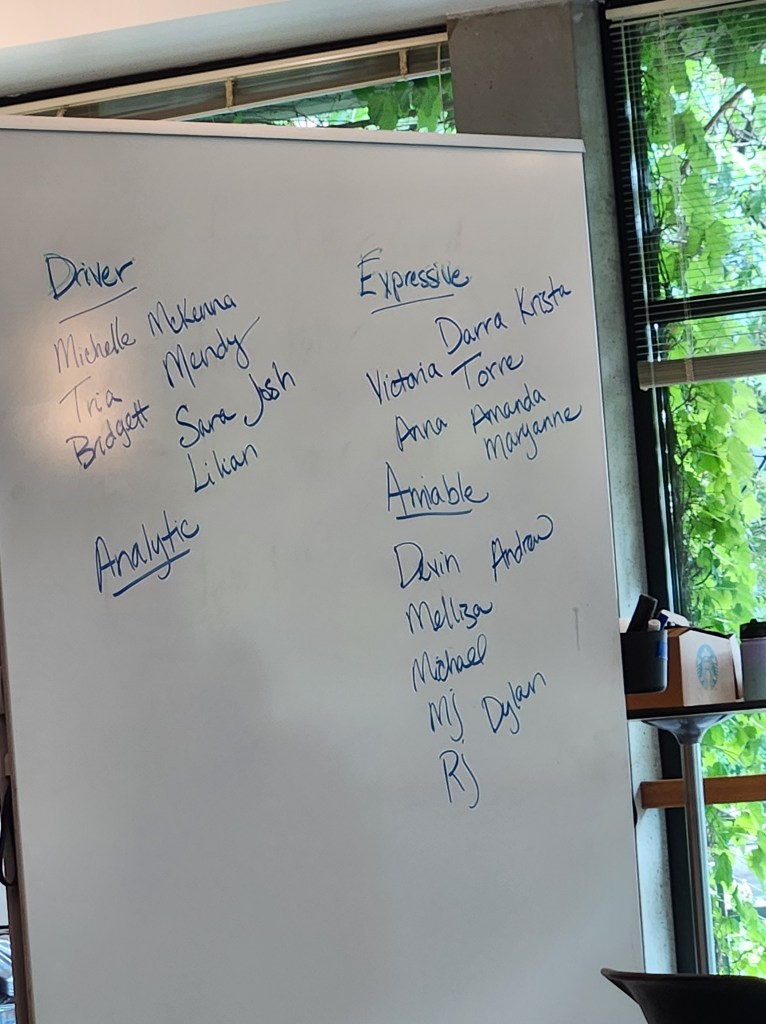 Driver
Michelle McKenna
Tria Mandy
Bridgett Sara Josh
Lilian
Analytic
Expressive
Darra Krista
Victoria Torre
Anna Amanda
Maryanne
Amiable
Devin Andrew
Melliza
Michael
MJ Dylan
RJ